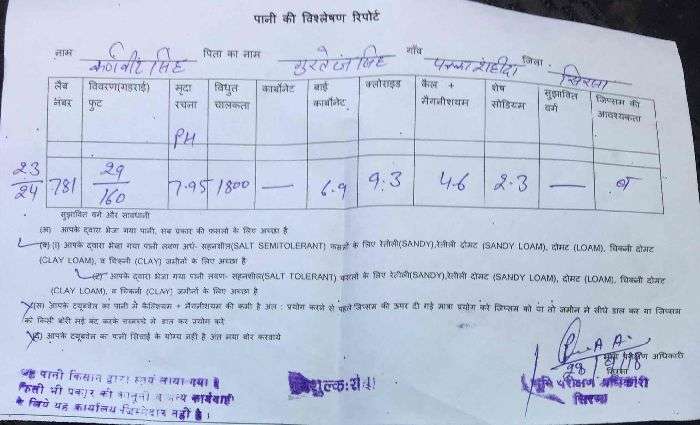 पानी की विश्लेषण रिपोर्ट
नाम पिता का नाम गाँव जिला सिरसा
लैब नंबर विवरण(गहराई) फुट मृदा रचना PH विधुत चालकता कार्बोनेट बाई कार्बोनेट क्लोराइड कैल + मैगनीशयम शेष सोडियम सुझावित वर्ग जिप्सम की आवश्यकता
23/24 781 29/160 7.95 1800 — 6.9 9.3 4.6 2.3 —
सुझावित वर्ग और सावधानी
(अ) आपके द्वारा भेजा गया पानी, सब प्रकार की फसलों के लिए अच्छा है
(ब) (1) आपके द्वारा भेजा गया पानी लवण अर्ध- सहनशील(SALT SEMITOLERANT) फसलों के लिए रेतीली(SANDY),रेतीली दोमट (SANDY LOAM), दोमट (LOAM), चिकनी दोमट
(CLAY LOAM), व चिकनी (CLAY) जमीनों के लिए अच्छा है
(2) आपके द्वारा भेजा गया पानी लवण- सहनशील(SALT TOLERANT) फसलों के लिए रेतीली(SANDY),रेतीली दोमट (SANDY LOAM), दोमट (LOAM), चिकनी दोमट
(CLAY LOAM), व चिकनी (CLAY) जमीनों के लिए अच्छा है
(स) आपके टयूबवेल का पानी में कैल्शियम + मैगनीशयम की कमी है अंत : प्रयोग करने से पहले जिप्सम की ऊपर दी गई मात्रा प्रयोग करे जिप्सम को या तो जमीन में सीधे डाल कर या जिप्सम
को किसी बोरी में डाल कर प्रयोग करे
(द) आपके टयूबवेल का पानी सिंचाई के योग्य नही है अत नया बोर करवाये
परीक्षण अधिकारी
सिरसा
यह पानी किसान द्वारा स्वयं लाया गया है
किसी भी प्रकार की कानूनी व अन्य कार्यवाही
के लिये यह कार्यालय जिम्मेदार नही है।
भूमि परीक्षण अधिकारी
सिरसा